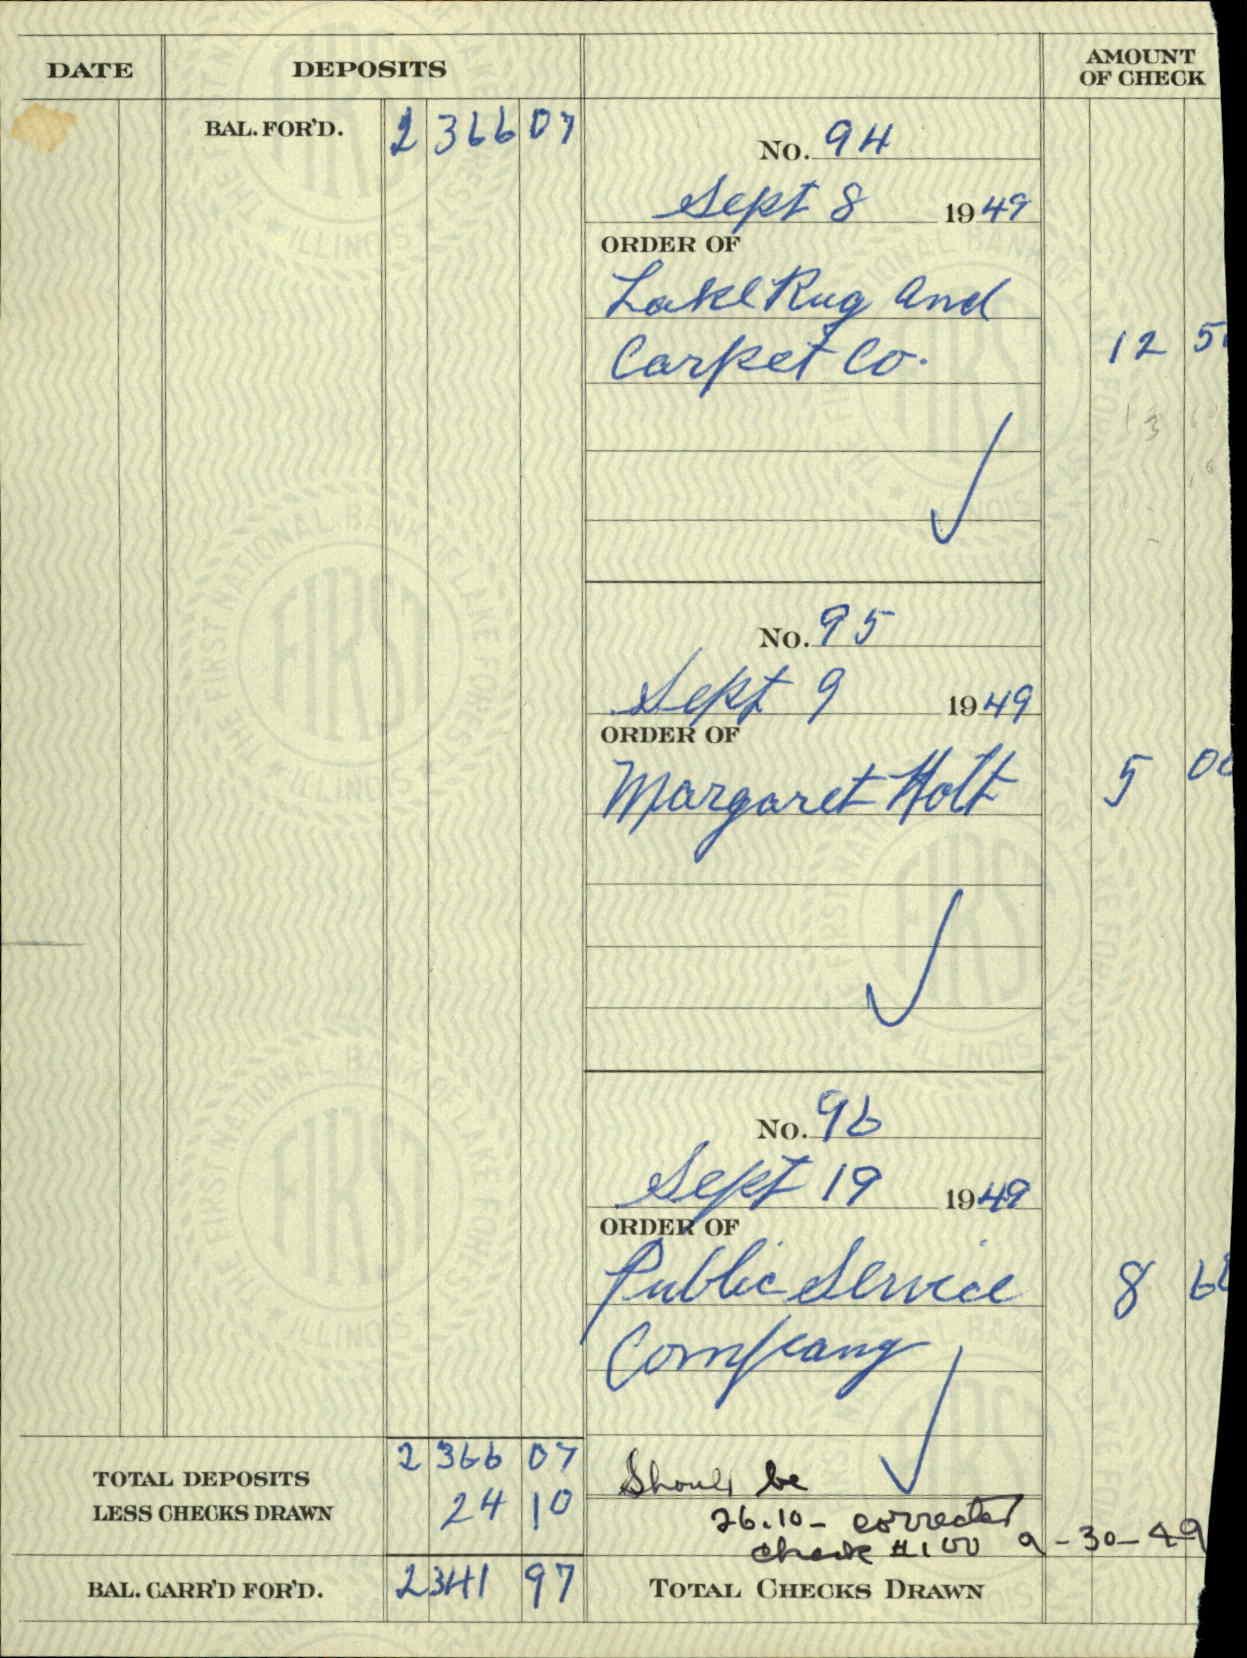 DATE DEPOSITS AMOUNT OF CHECK
BAL. FOR'D. 2 366 07
No. 94
Sept 8 1949
ORDER OF
Lake Rug and
Carpet Co. 12 5
No. 95
Sept 9 1949
ORDER OF
Margaret Holt 5 00
No. 96
Sept 19 1949
ORDER OF
Public Service 8 6
Company
TOTAL DEPOSITS 2 366 07
Should be
LESS CHECKS DRAWN 24 10
26.10 - corrected
check #100 9-30-49
BAL. CARR'D FOR'D. 2341 97
TOTAL CHECKS DRAWN